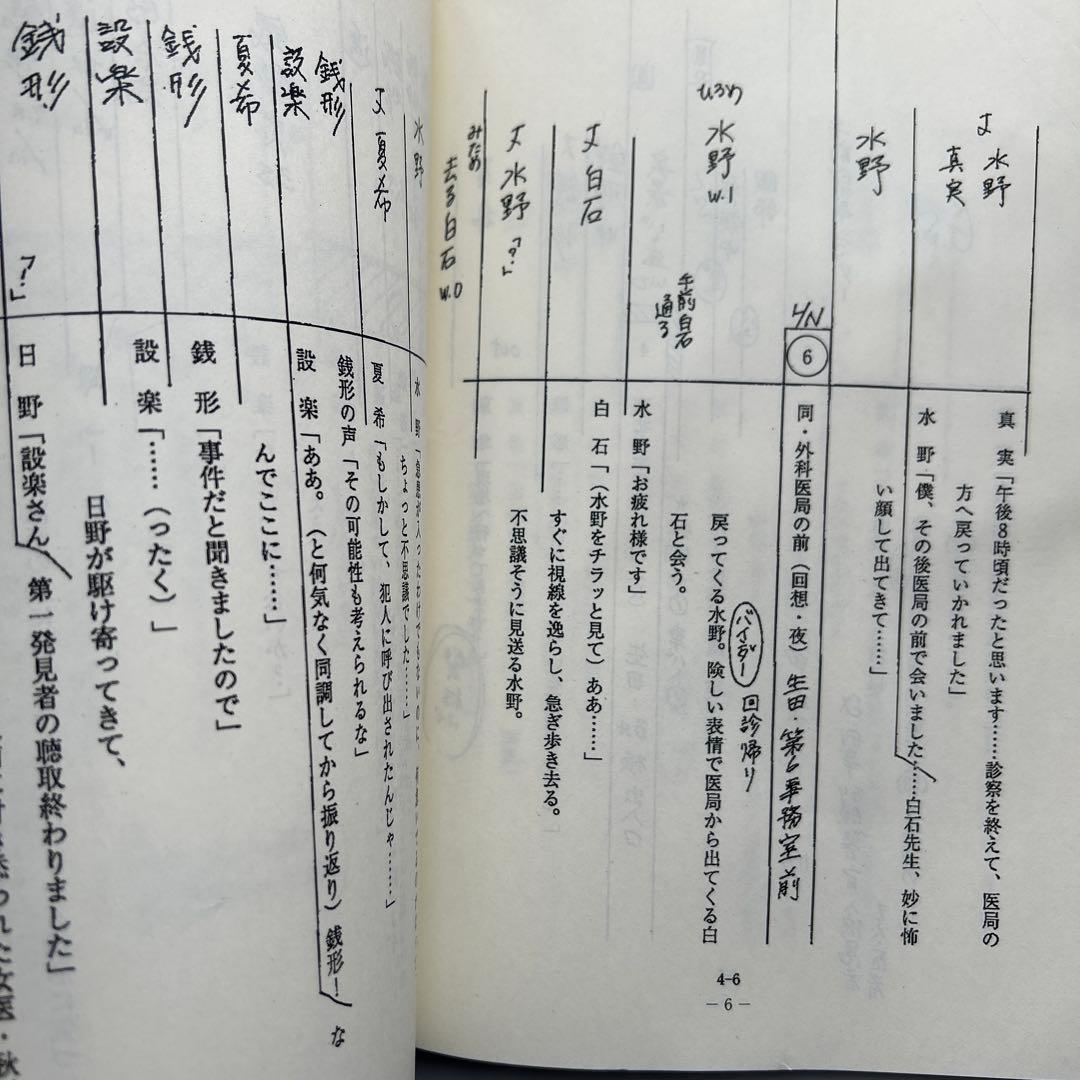 丈 水野
真実
水野
4/N
ひろめ
水野
W.1
午前白石
通る
丈 白石
丈 水野「?」
みため
去る白石 W.O
真 実「午後8時頃だったと思います……診察を終えて、医局の
方へ戻っていかれました」
水 野「僕、その後医局の前で会いました……白石先生、妙に怖
い顔して出てきて……」
6
同・外科医局の前(回想・夜) 生田・第6事務室前
バインダー
回診帰り
戻ってくる水野。険しい表情で医局から出てくる白
石と会う。
水 野「お疲れ様です」
白 石「(水野をチラッと見て)ああ……」
すぐに視線を逸らし、急ぎ歩き去る。
不思議そうに見送る水野。
4-6
―6―
水野
丈 夏希
銭形
設楽
夏希
銭形
設楽
銭形
「!」
ちょっと不思議でした……」
夏 希「もしかして、犯人に呼び出されたんじゃ……」
銭形の声「その可能性も考えられるな」
設 楽「ああ。(と何気なく同調してから振り返り)銭形! な
んでここに……」
銭 形「事件だと聞きましたので」
設 楽「……(ったく)」
日野が駆け寄ってきて、
日 野「設楽さん 第一発見者の聴取終わりました」